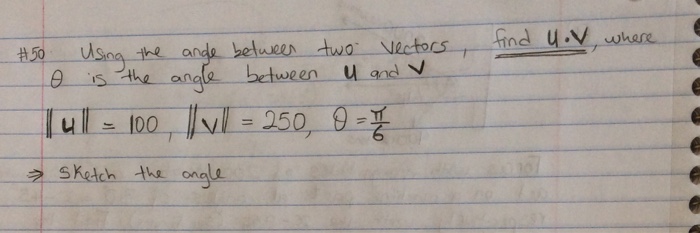 #50 Using the angle between two vectors, find u·v, where
θ is the angle between u and v
||u|| = 100, ||v|| = 250, θ = π/6
⇒ Sketch the angle